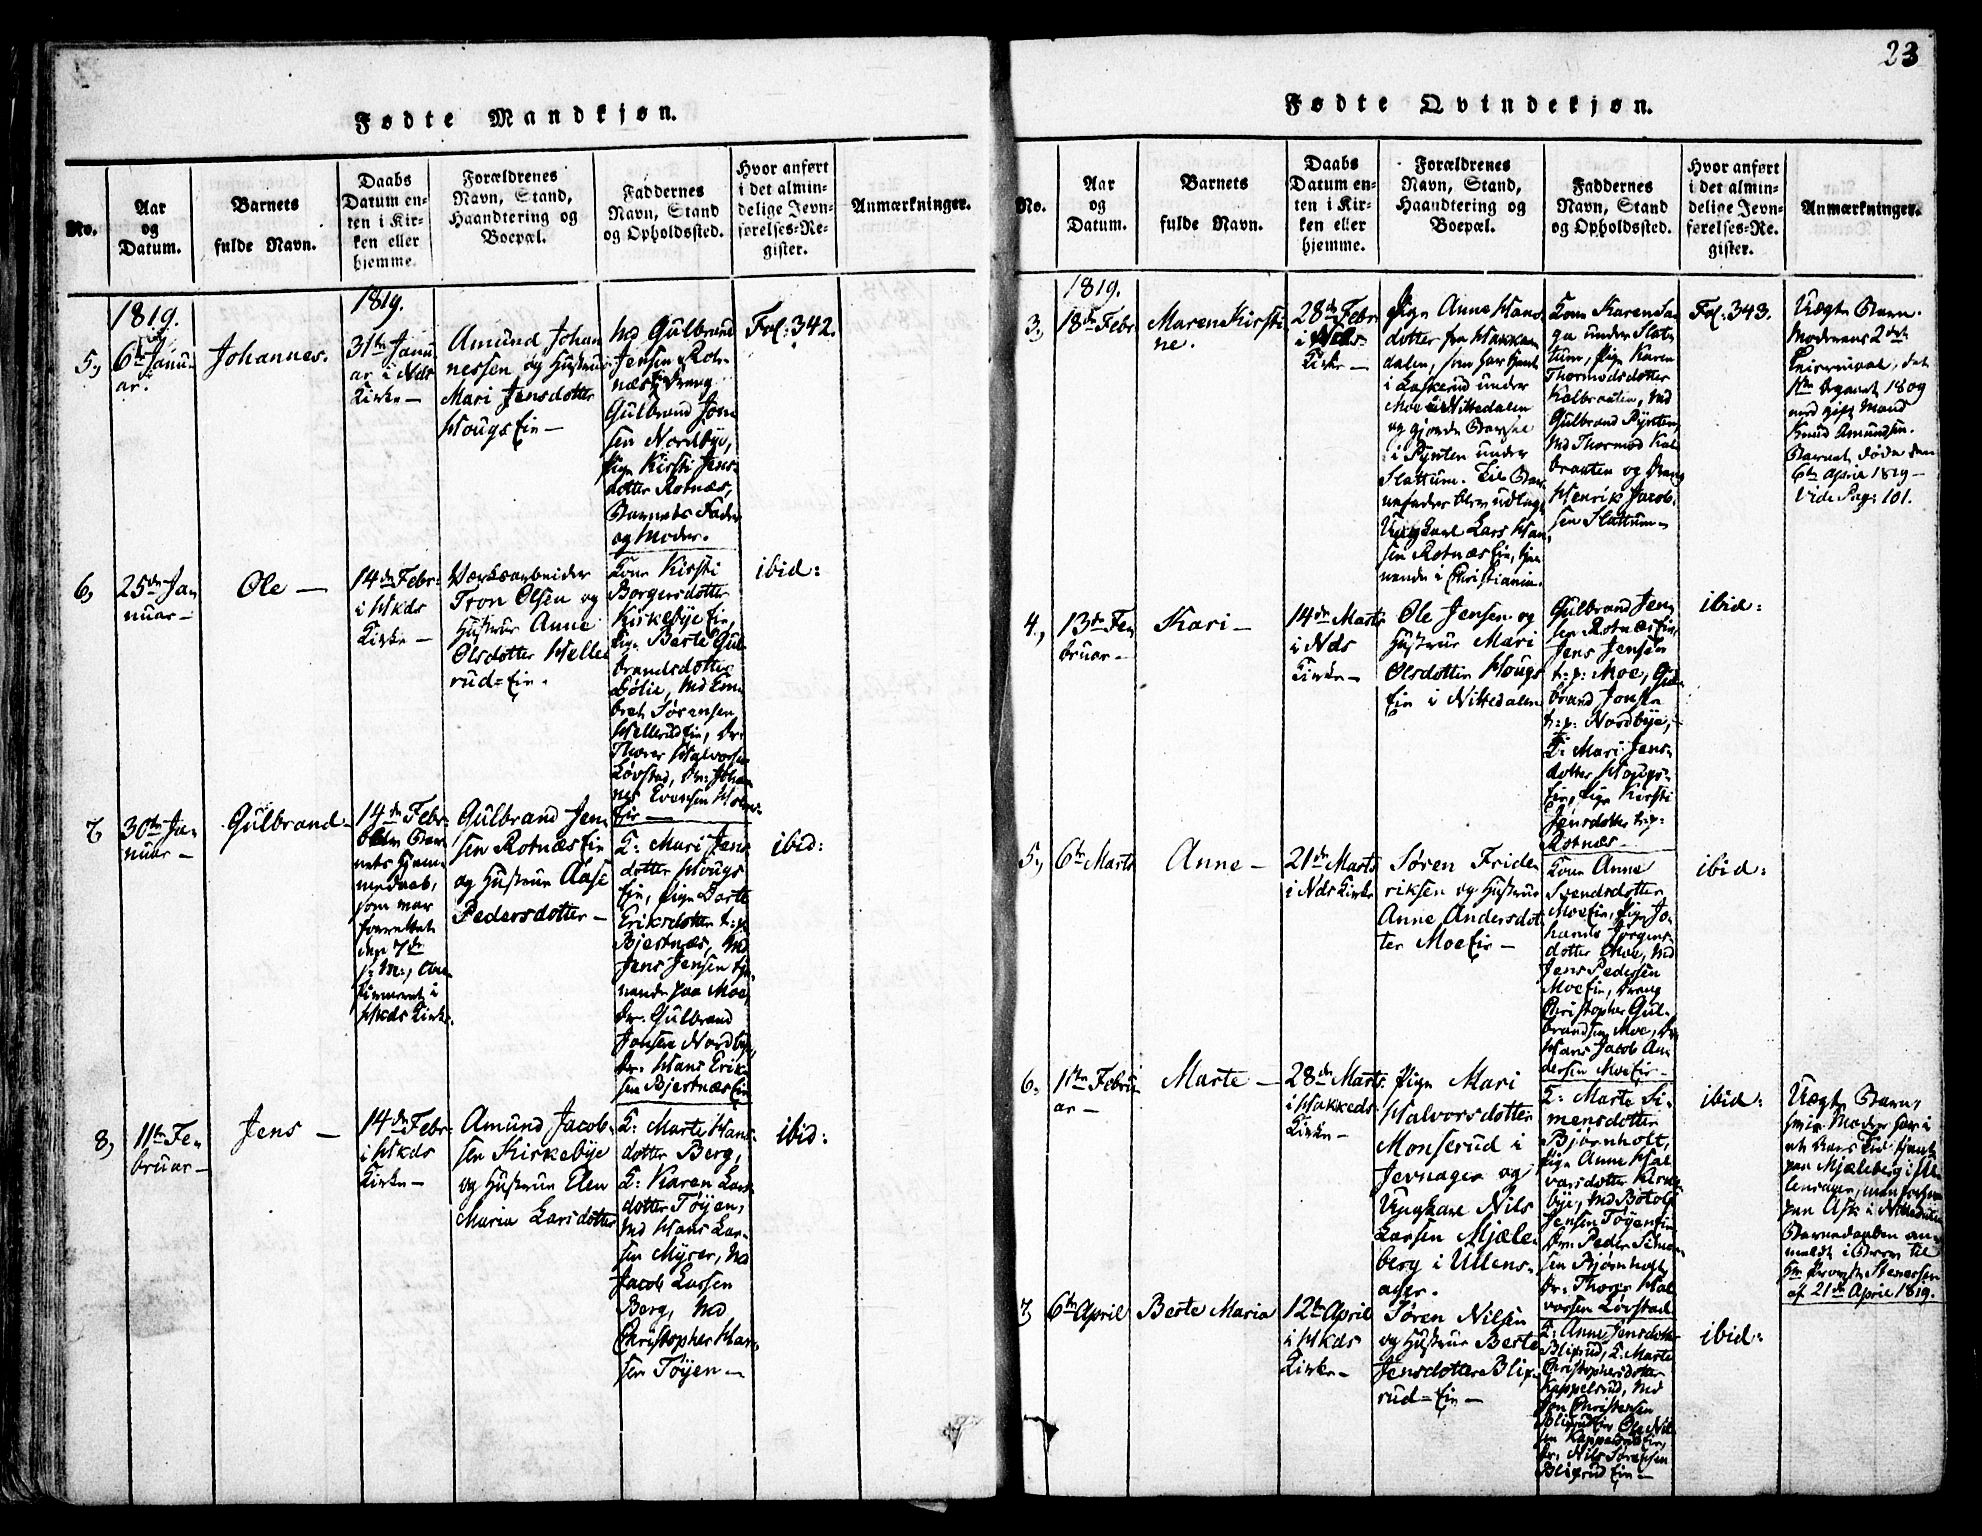 23
Fødte Mandkjøn.
No.
Aar
og
Datum.
Barnets
fulde Navn.
Daabs
Datum en-
ten i Kir-
ken eller
hjemme.
Forældrenes
Navn, Stand,
Haandtering og
Boepæl.
Faddernes
Navn, Stand
og Opholdssted.
Hvor anført
i det almin-
delige Jevn-
førelses-Re-
gister.
Anmærkninger.
1819.
5,
6te Janu-
ar.
Johannes.
1819.
31te Janu-
ar i Nds
Kirke —
Amund Johan
nessen og Hustrue
Mari Jensdotter
Hougs Eie —
Md Gulbrand
Jensen Rot-
næs Eie, Dreng
Gulbrand Jon
sen Nordbye,
Pige Kirsti Jens-
dotter Rotnæs,
Barnets Fader
og Moder.
Fol: 342.
6,
25de Ja-
nuar —
Ole —
14de Febr:
i Hkds
Kirke —
Værksarbeider
Tron Olsen og
Hustrue Anne
Olsdotter Helle
rud=Eie.
Kone Kirsti
Borgersdotter
Kirkebye Eie,
Pige Berte Gul-
brandsdotter
Sølie, Md Em-
bret Sørensen
Hellerud Eie, Dr:
Thorer Halvorsen
Løvstad, Dr: Johan
nes Evensen
Eie —
ibid:
7
30te Ja-
nuar —
Gulbrand —
14de Febr:
blev Bar-
nets Hjem-
medaab,
som var
forrettet
den 7de
s: M:,
firmeret i
Hkds Kirke.
Gulbrand Jen
sen Rotnæs Eie
og Hustrue Aase
Pedersdotter —
K: Mari Jens
dotter Hougs
Eie, Pige Dorte
Eriksdotter t:p:
Bjertnæs, Md
Jens Jensen tje-
nende paa Moe,
Dr. Gulbrand
Jonsen Nordbye,
Dr. Hans Erik-
sen Bjertnæs Eie
ibid:
8,
11te Fe-
bruar —
Jens —
14de Febr:
i Hkds
Kirke —
Amund Jacob-
sen Kirkebye
og Hustrue Elen
Maria Larsdotter
K: Marte Hans-
dotter Berg,
K: Karen Lars
dotter Tøyen,
Md Hans Lar-
sen Myrer, Md
Jacob Larsen
Berg, Md
Christopher Han-
sen Tøyen —
ibid:
Fødte Qvindekjøn.
No.
Aar
og
Datum.
Barnets
fulde Navn.
Daabs
Datum en-
ten i Kir-
ken eller
hjemme.
Forældrenes
Navn, Stand,
Haandtering og
Boepæl.
Faddernes
Navn, Stand
og Opholdssted.
Hvor anført
i det almin-
delige Jevn-
førelses-Re-
gister.
Anmærkninger.
1819.
3,
18de Febr.
Maren Kirsti
ne.
28de Febr
i Nds
Kirke —
Pige Anne Hans
dotter fra Hakka
dalen, som har tjent
i Laskerud under
Moe i Nittedalen
og gjorde Barsel
i Pynten under
Slattum. Til Bar-
nefader blev udlagt
Ungkarl Lars Han
sen Rotnæs Eie, tje-
nende i Christiania.
Kone Karen
under Slat-
tum, Pige Karen
Thormodsdotter
Kalbraaten, Md
Gulbrand Pynten,
Md Thormod Kal-
braaten og Dreng
Henrik Jacob-
sen Slattum —
Fol: 343.
Uægte Barn.
Moderens 2det
Leiermaal, det
1ste begaaet 1809
med gift Mand
Knud Amundsen.
Barnet døde den
6te April 1819 —
Vide Pag: 101.
4,
13de Fe-
bruar —
Kari —
14de Marts
i Nds
Kirke —
Ole Jensen og
Hustrue Mari
Olsdotter Hougs
Eie i Nittedalen
Gulbrand Jen-
sen Rotnæs Eie,
Jens Jensen
t:p: Moe, Gul-
brand Jonsen
t:p: Nordbye,
K: Mari Jens-
dotter Hougs-
Eie, Pige Kirsti
Jensdotter t:p:
Rotnæs —
ibid:
5,
6te Marts
Anne —
21de Marts
i Nds Kirke
Søren Fride
riksen og Hustrue
Anne Andersdot
ter Moe Eie —
Kone Anne
Svendsdotter
Moe Eie, Pige Jo-
hanne Jørgens-
dotter Moe, Md
Jens Pedersen
Moe Eie, Dreng
Christopher Gul-
brandsen Moe, Dr
Hans Jacob An-
dersen Moe Eie —
ibid:
6,
11te Febru-
ar —
Marte —
28de Marts
i Hakkeds
Kirke —
Pige Mari
Halvorsdotter
Monserud i
Jevnager og
Ungkarl Nils
Larsen Mjæle-
berg i Ullens-
ager.
K: Marte Si-
mensdotter
Bjørnholt,
Pige Anne Hal
vorsdotter Kirke-
bye, Md Botolf
Jensen Tøyen Eie
Dr: Peder Simen-
sen Bjørnholt,
Dr: Thorer Hal
vorsen Løvstad
ibid:
Uægte Barn,
hvis Moder har i
et Aars Tid tjent
paa Mjæleberg i Ul-
lensager, men
paa Ask i Nittedalen
Barnedaaben an-
meldt i Brev til
Hr Provst Stenersen
af 21de April 1819.
7,
6te April
Berte Maria
12te April
i Hkds
Kirke —
Søren Nilsen
og Hustrue Berte
Jensdotter Blix-
rud=Eie —
K: Anne Jensdotter
Blixrud, K: Marte
Christophersdotter
Kappelsrud, Md
Jon Christensen
Blixrud Eie, Ole Nil-
sen Kappelsrud Eie,
Dr. Nils Sørensen
Blixrud Eie —
ibid: